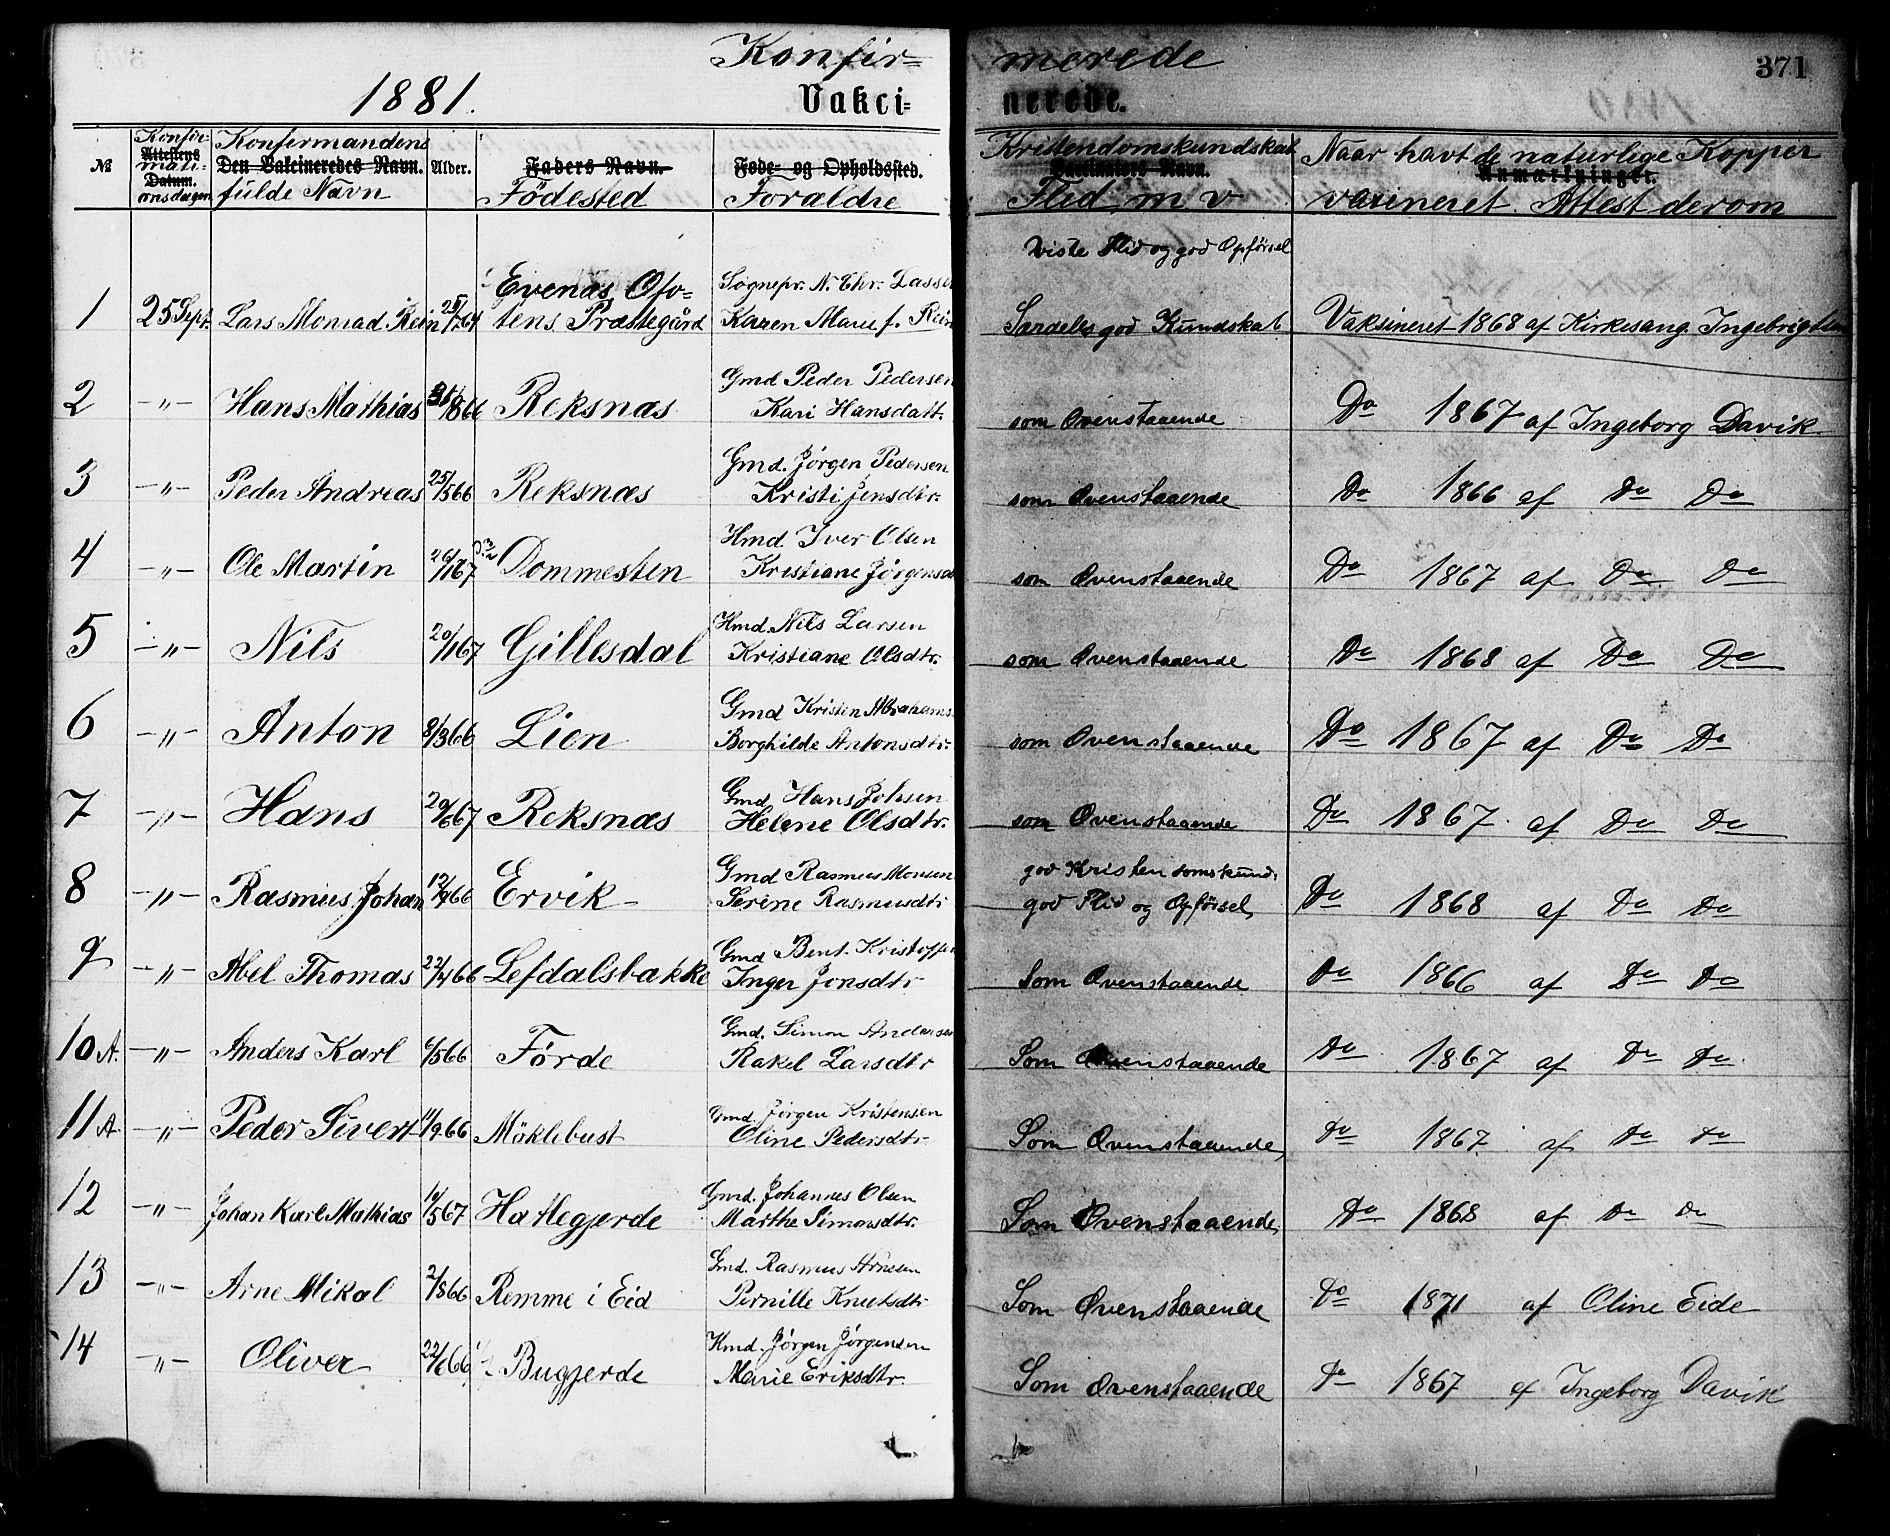 Konfir= merede 371
1881. Vakci= nerede.
№ Konfir- Attestens mati- Datum. onsdagen
Konfermandens Den Vakcineredes Navn. fulde Navn
Alder.
Faders Navn. Födested
Føde- og Opholdssted. Forældre
Kristendomskundskab Vaccinators Navn. Flid m v
Naar havt de naturlige Kopper Anmærkninger. vaxineret. Attest derom
viste Flid og god Opførsel
Evenæs, Ofo= Sognepr. N. Chr. Lassen
1 25 Sept. Lars Monrad Rein tens Præstegård Karen Marie f. Rein Særdeles god Kundskab Vaksineret 1868 af Kirkesang. Ingebrigtsen
Gmd Peder Pedersen
2 -"- Hans Mathias Reksnæs Kari Hansdatt. som Ovenstaaende Do 1867 af Ingeborg Davik.
Gmd. Jørgen Pedersen
3 -"- Peder Andreas 25/5 66 Reksnæs Kristi Jensdtr. som Ovenstaaende Do 1866 af Do Do
Hmd Iver Olsen
4 -"- Ole Martin 26/1 67 Dommesten Kristiane Jörgensdt som Ovenstaaende Do 1867 af Do Do
Hmd. Nils Larsen
5 -"- Nils 20/1 67 Gillesdal Kristiane Olsdtr. som Ovenstaaende Do 1868 af Do Do
Gmd Kristen Abrahams.
6 -"- Anton 8/3 66 Lien Borghilde Antonsdtr. som Ovenstaaende Do 1867 af Do Do
Gmd Hans Johsen
7 -"- Hans 20/6 67 Reksnæs Helene Olsdtr. som Ovenstaaende Do 1867 af Do Do
Gmd Rasmus Monsen god Kristendomskund.
8 -"- Rasmus Johan 12/9 66 Ervik Serine Rasmusdtr god Flid og Opførsel, Do 1868 af Do Do
Gmd Bent. Kristoffer
9 -"- Abel Thomas 22/4 66 Lefdalsbakke Inger Jonsdtr Som Ovenstaaende Do 1866 af Do Do
Gmd. Simon Andersen
10 A. -"- Anders Karl 6/5 66 Förde Rakel Larsdtr Som Ovenstaaende Do 1867 af Do Do.
Gmd. Jørgen Kristensen
11 A. -"- Peder Sivert 11/9 66 Möklebust Oline Pedersdtr. Som Ovenstaaende, Do 1867 af Do Do
Gmd. Johannes Olsen
12 -"- Johan Karl Mathias 19/5 67 Hatlegjerde Marthe Simonsdtr. Som Ovenstaaende, Do 1868 af Do Do
Gmd. Rasmus Arnesen
13 -"- Arne Mikal 2/8 66 Remme i Eid Pernille Knutsdtr Som Ovenstaaende Do 1871 af Oline Eide
Hmd. Jørgen Jørgensen
14 -"- Oliver 22/6 66 Bugjerde Marie Eriksdtr. Som Ovenstaaende Do 1867 af Ingeborg Davik